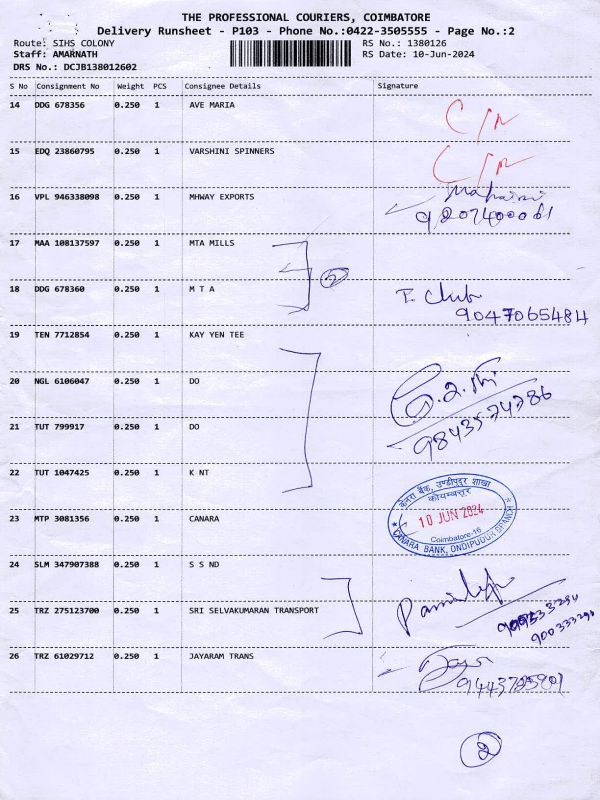 THE PROFESSIONAL COURIERS, COIMBATORE
Delivery Runsheet - P103 - Phone No.:0422-3505555 - Page No.:2
Route: SIHS COLONY
RS No.: 1380126
Staff: AMARNATH
RS Date: 10-Jun-2024
DRS No.: DCJB138012602
S No Consignment No Weight PCS Consignee Details Signature
14 DDG 678356 0.250 1 AVE MARIA
15 EDQ 23860795 0.250 1 VARSHINI SPINNERS
16 VPL 946338098 0.250 1 MHWAY EXPORTS
17 MAA 108137597 0.250 1 MTA MILLS
2
18 DDG 678360 0.250 1 M T A T. Club
9047065484
19 TEN 7712854 0.250 1 KAY YEN TEE
20 NGL 6106047 0.250 1 DO
21 TUT 799917 0.250 1 DO
9843574786
22 TUT 1047425 0.250 1 K NT
केनरा बैंक, उण्डीपुदूर शाखा
कोयम्बत्तूर
23 MTP 3081356 0.250 1 CANARA 10 JUN 2024
Coimbatore-16
CANARA BANK, ONDIPUDUR BRANCH
24 SLM 347907388 0.250 1 S S ND
25 TRZ 275123700 0.250 1 SRI SELVAKUMARAN TRANSPORT
26 TRZ 61029712 0.250 1 JAYARAM TRANS
2